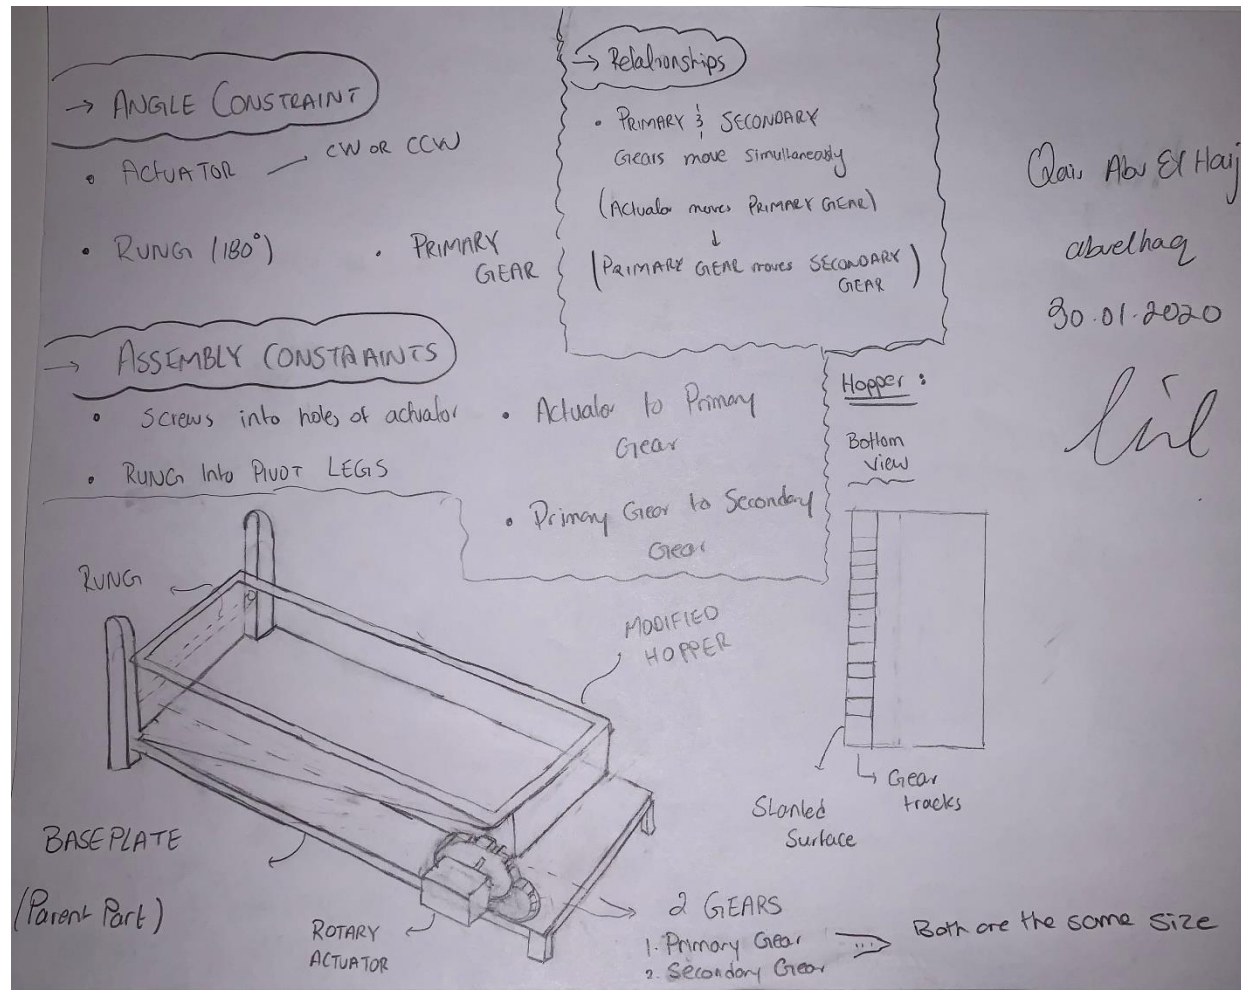 → ANGLE CONSTRAINT
• ACTUATOR — CW OR CCW
• RUNG (180°)
• PRIMARY
GEAR
→ Relationships
• PRIMARY & SECONDARY
Gears move simultaneously
(Actuator moves PRIMARY GEAR)
↓
(PRIMARY GEAR moves SECONDARY
GEAR)
Qais Abu El Haij
abuelhaq
30.01.2020
→ ASSEMBLY CONSTRAINTS
• Screws into holes of actuator
• RUNG Into PIVOT LEGS
• Actuator to Primary
Gear
• Primary Gear to Secondary
Gear
Hopper :
Bottom
View
RUNG
MODIFIED
HOPPER
Gear
tracks
Slanted
Surface
BASEPLATE
(Parent Part)
ROTARY
ACTUATOR
2 GEARS
1. Primary Gear
2. Secondary Gear
Both are the same size